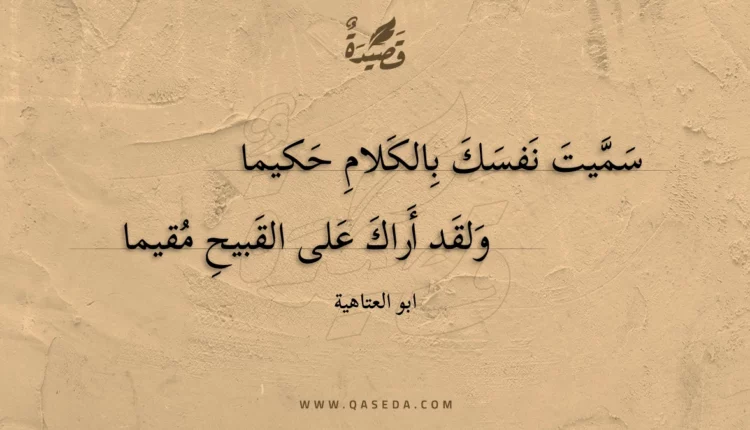 قَصِيدَةٌ
سَمَّيتَ نَفسَكَ بِالكَلامِ حَكيما
وَلَقَد أَراكَ عَلى القَبيحِ مُقيما
ابو العتاهية
WWW.QASEDA.COM